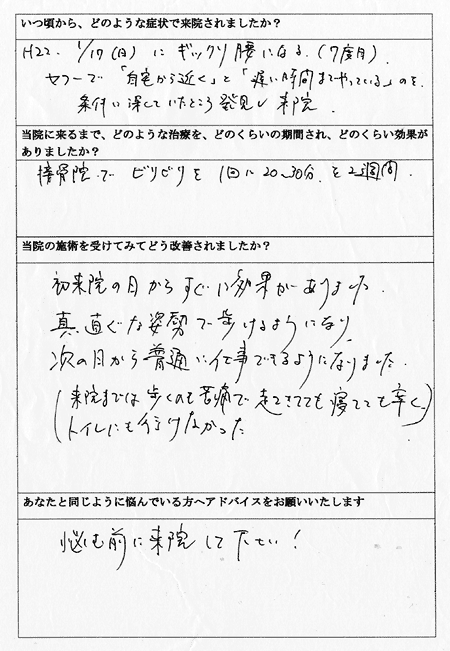 いつ頃から、どのような症状で来院されましたか？
H22. 1/17(日)にギックリ腰になる。(7度目)
ヤフーで「自宅から近く」と「遅い時間までやっている」のを
条件に探していたところ発見し来院
当院に来るまで、どのような治療を、どのくらいの期間され、どのくらい効果が
ありましたか？
接骨院でビリビリを1回に20〜30分を2週間.
当院の施術を受けてみてどう改善されましたか？
初来院の日からすぐに効果がありました.
真直ぐな姿勢で歩けるようになり
次の日から普通に仕事できるようになりました.
(来院までは歩くのも苦痛で起きてても寝てても辛く、
トイレにも行けなかった)
あなたと同じように悩んでいる方へアドバイスをお願いいたします
悩む前に来院して下さい！